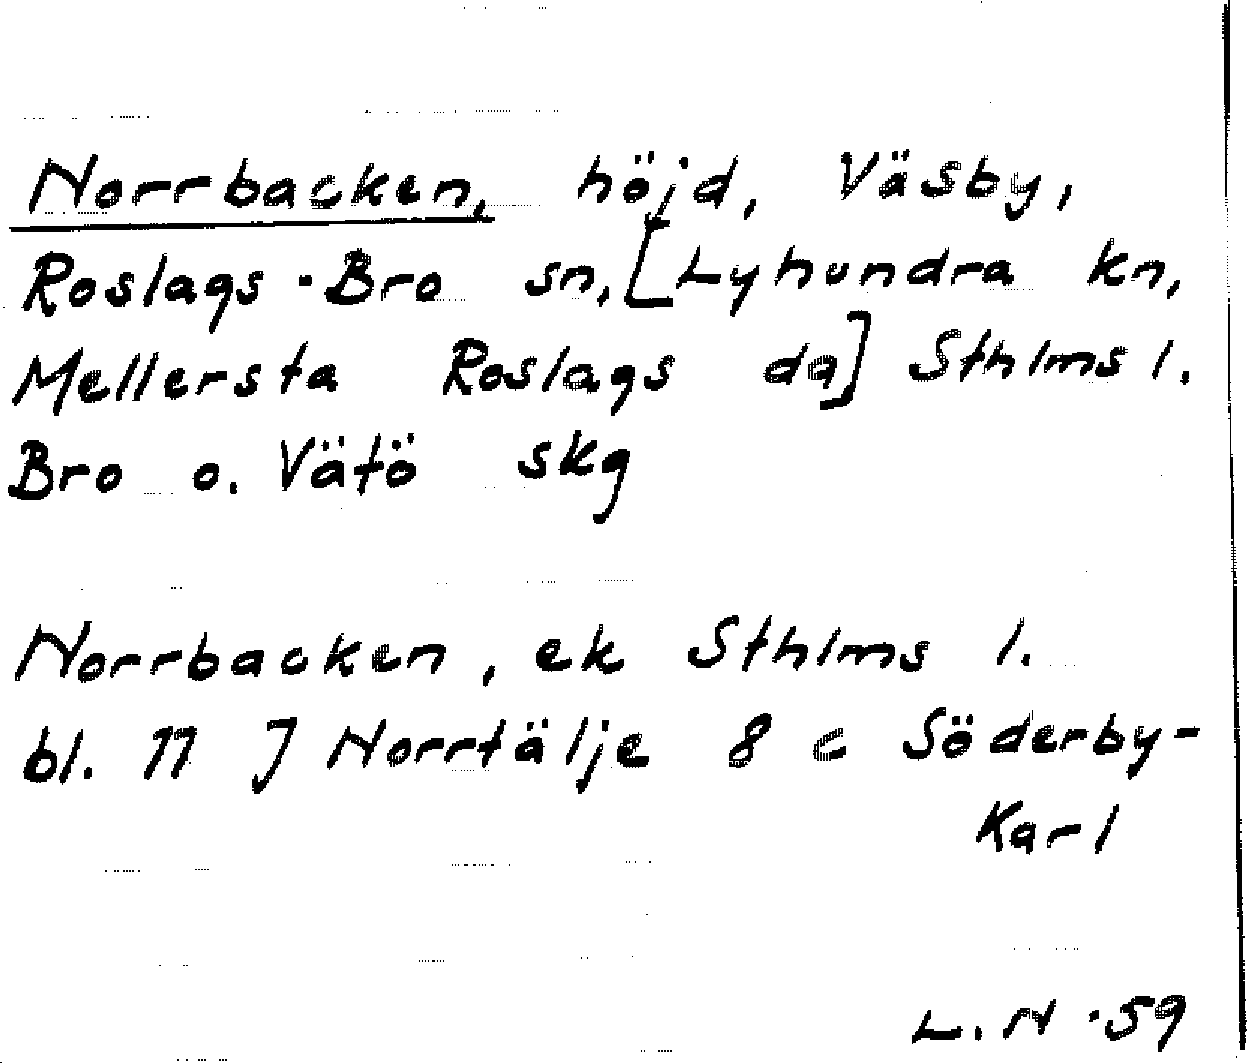 Norrbacken, höjd, Väsby,
Roslags-Bro sn, [Lyhundra kn,
Mellersta Roslags da] Sthlms l.
Bro o. Vätö skg
Norrbacken, ek Sthlms l.
bl. 11 J Norrtälje 8 c Söderby-
Karl
L. N -59